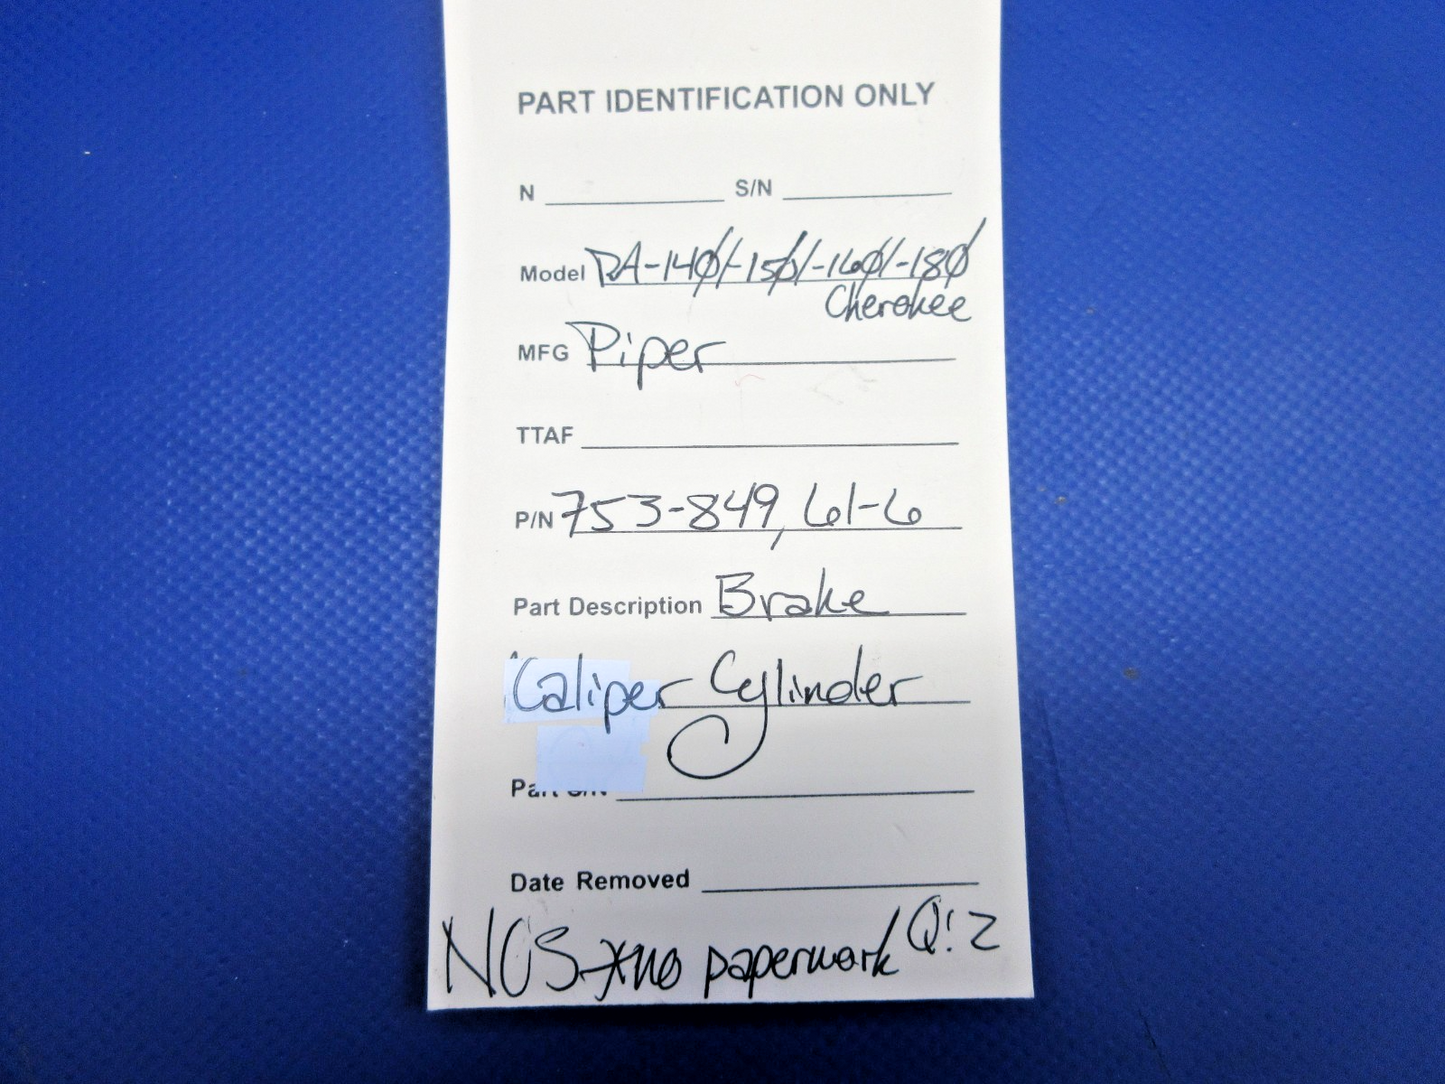 PART IDENTIFICATION ONLY
N S/N
Model PA-140/-150/-160/-180
Cherokee
MFG Piper
TTAF
P/N 753-849, 61-6
Part Description Brake
Caliper Cylinder
Part S/N
Date Removed
NOS *no paperwork Q:2